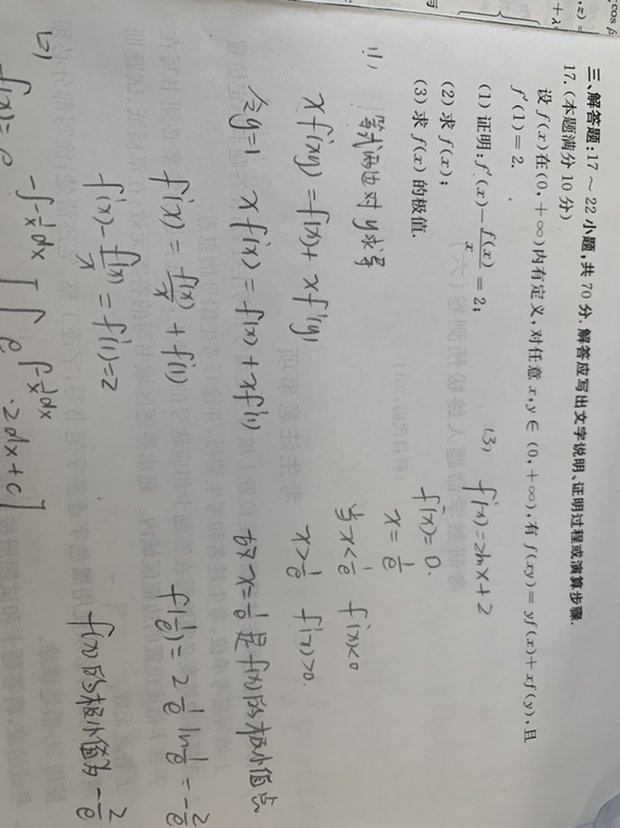 三、解答题:17～22小题,共70分.解答应写出文字说明、证明过程或演算步骤.
17.(本题满分10分)
设f(x)在(0,+∞)内有定义,对任意x,y∈(0,+∞),有f(xy)=yf(x)+xf(y),且
f′(1)=2.
(1)证明:f′(x)-f(x)/x=2;
(2)求f(x);
(3)求f(x)的极值.
(1) 等式两边对y求导
xf'(xy)=f(x)+xf'(y)
令y=1 xf'(x)=f(x)+xf'(1)
f'(x)=f(x)/x+f'(1)
f'(x)-f(x)/x=f'(1)=2
(2)
f(x)=e^{-∫-1/x dx}[∫e^{∫-1/x dx}·2dx+C]
(3) f'(x)=2lnx+2
f'(x)=0.
x=1/e
当x<1/e f'(x)<0
x>1/e f'(x)>0.
故x=1/e是f(x)的极小值点
f(1/e)=2 1/e ln 1/e=-2/e
f(x)的极小值为-2/e